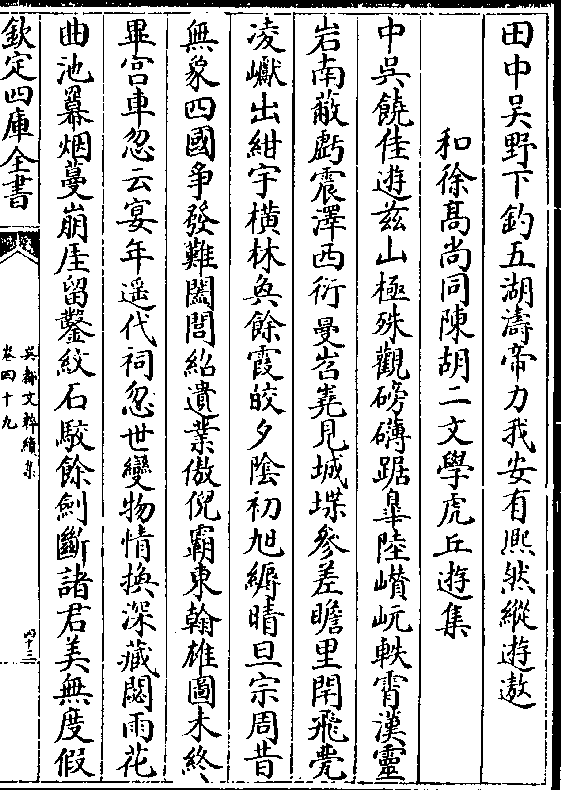 田中吳野下釣五湖濤帝力我安有熈然縱遊遨
和徐髙尚同陳胡二文學虎丘遊集
中吳饒佳遊兹山極殊觀磅礴踞臯陸巑岏軼霄漢靈
岩南蔽虧震澤西衍曼岧嶤見城堞參差瞻里閈飛甍
凌巘出紺宇橫林奐餘霞皎夕陰初旭縟晴旦宗周昔
無象四國爭發難闔閭紹遺業傲倪霸東翰雄圖未終
畢宫車忽云宴年遥代祠忽世變物情換深藏閟雨花
曲池羃烟蔓崩厓留鑿紋石駮餘劍斷諸君美無度假
欽定四庫全書
吳都文粹續集
卷四十九
四十三